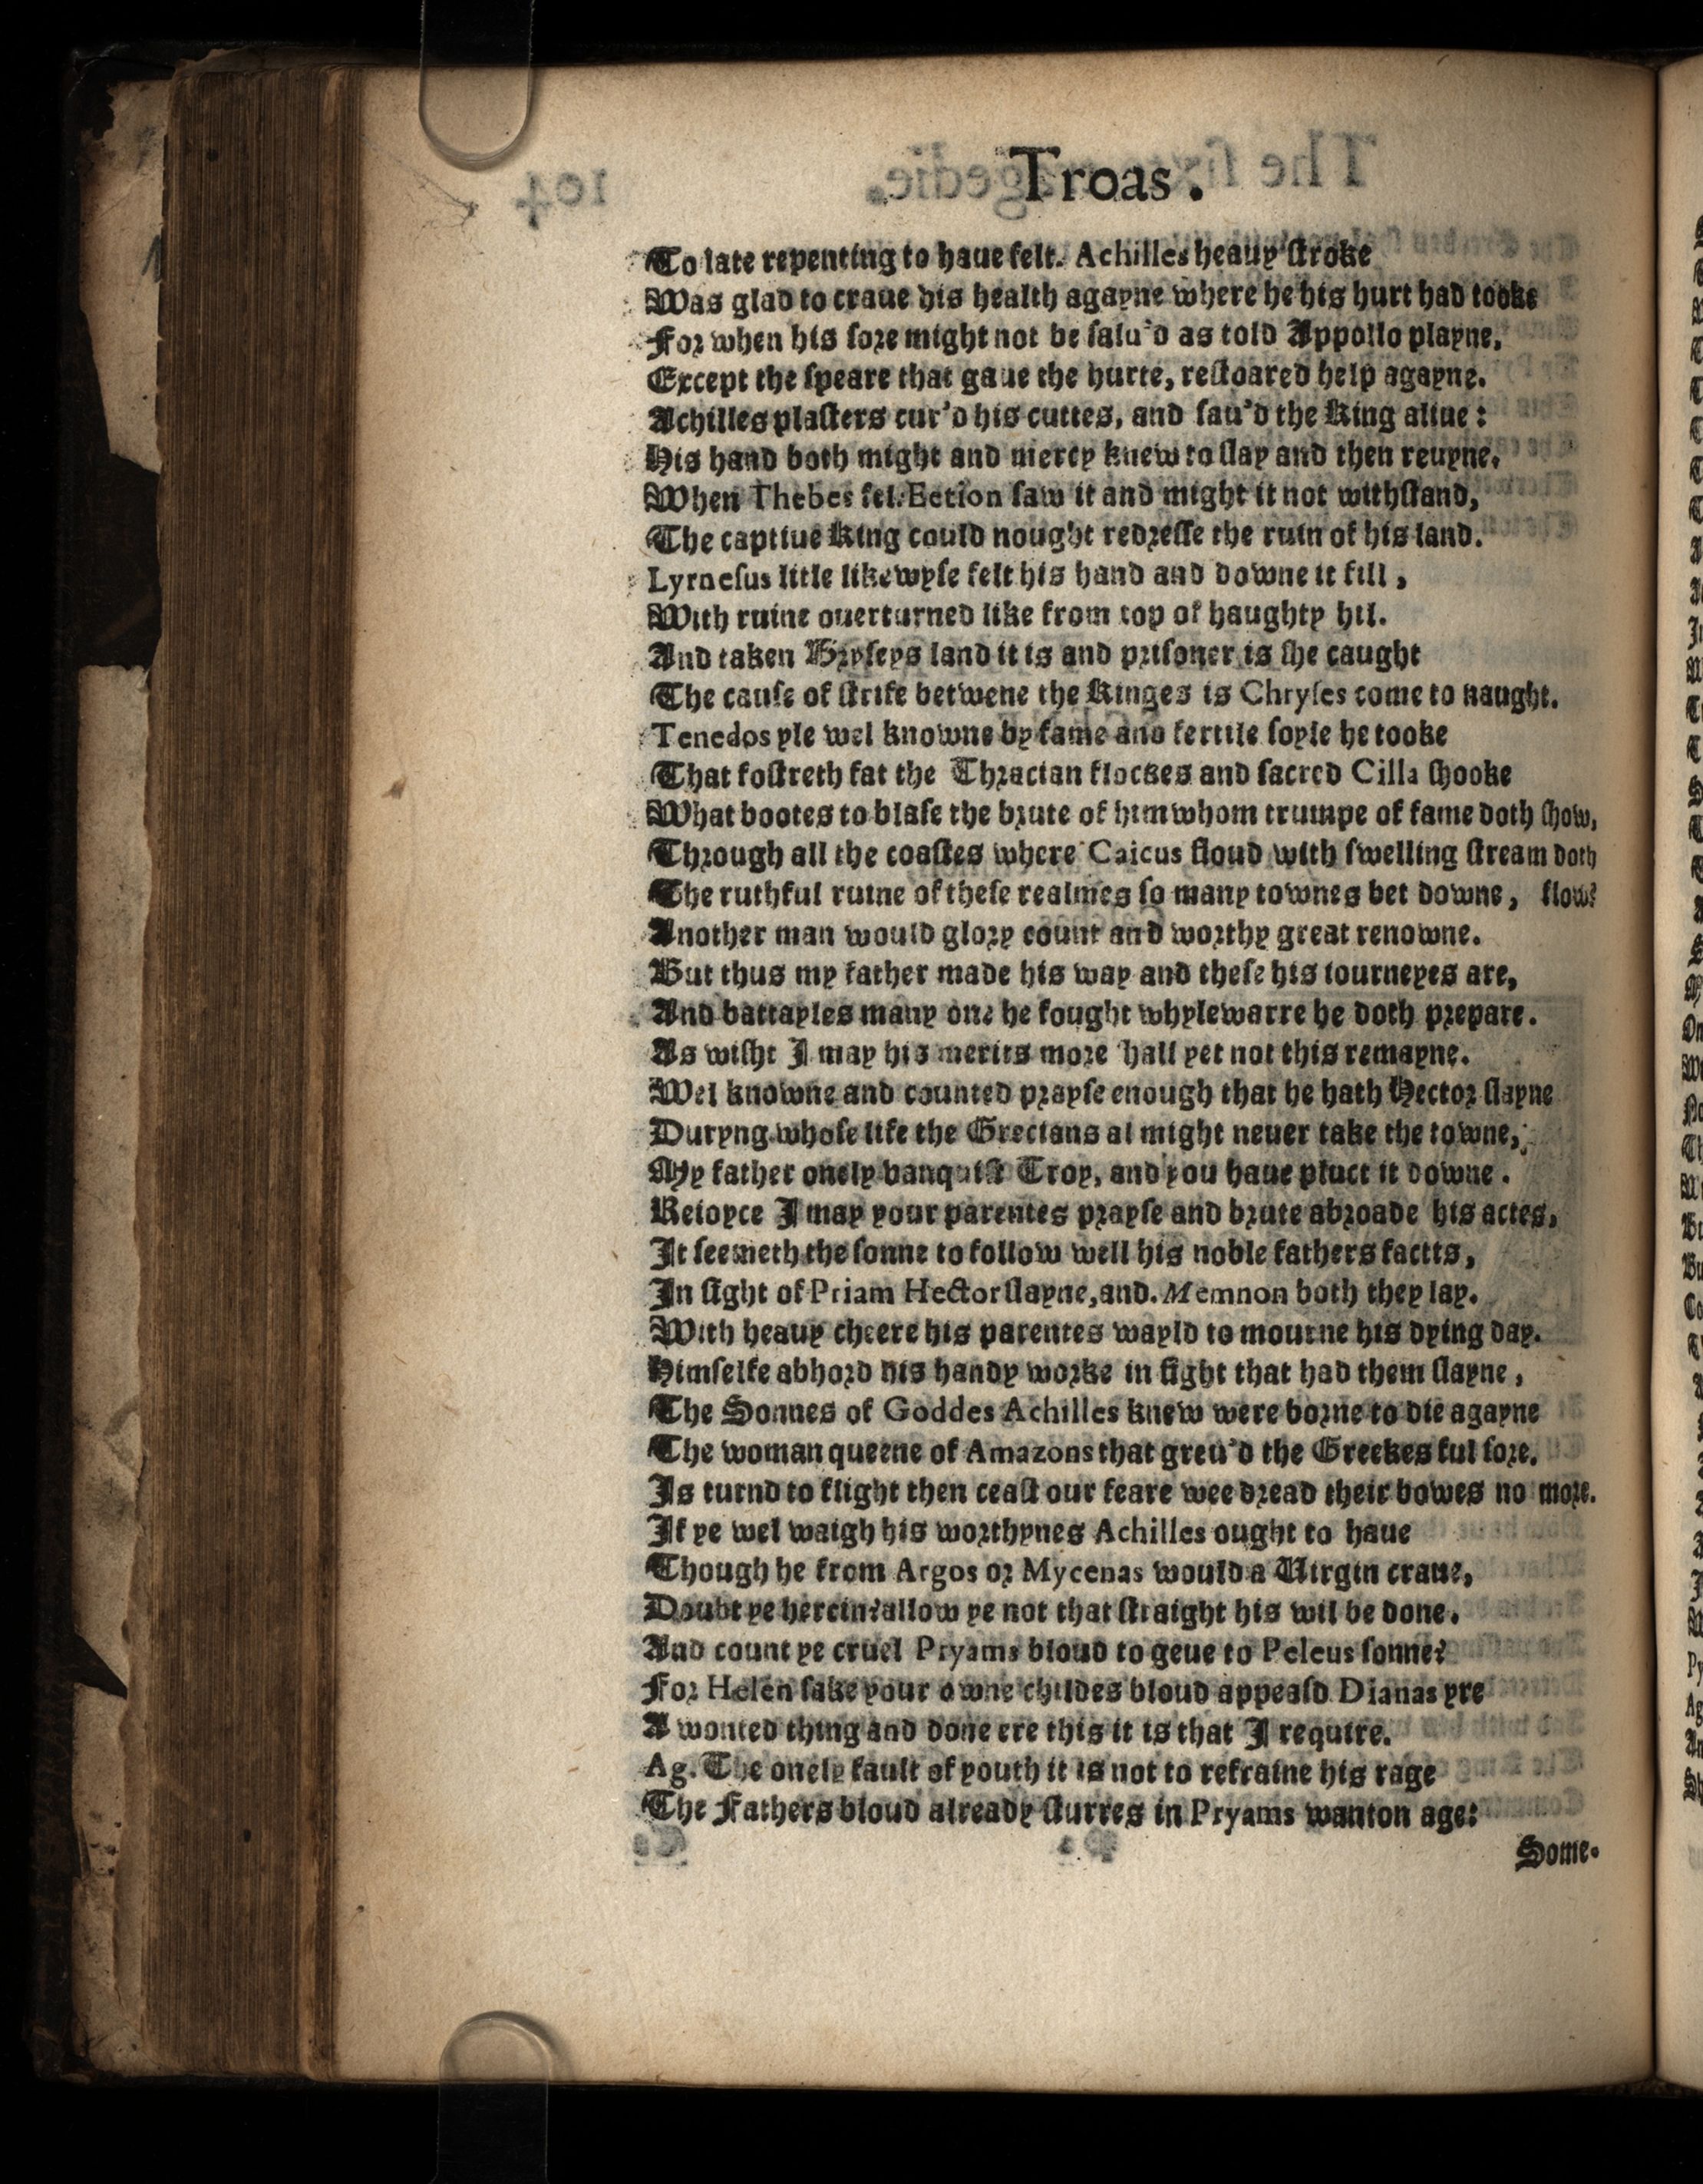 Troas.
To late repenting to haue felt. Achilles heauy ſtroke
Was glad to craue his health agayne where he his hurt had tooke
For when his ſore might not be ſalu'd as told Appollo playne,
Except the ſpeare that gaue the hurte, reſtoared help agayne.
Achilles plaſters cur'd his cuttes, and ſau'd the King aliue:
His hand both might and mercy knew to ſlay and then reuyne.
When Thebes fel. Eetion ſaw it and might it not withſtand,
The captiue King could nought redreſſe the ruin of his land.
Lyrneſus litle likewyſe felt his hand and downe it fill,
With ruine ouerturned like from top of haughty hil.
And taken Bryſeys land it is and priſoner is ſhe caught
The cauſe of ſtrife betwene the Kinges is Chryſes come to naught.
Tenedos yle wel knowne by fame and fertile ſoyle he tooke
That foſtreth fat the Thracian flockes and ſacred Cilla ſhooke
What bootes to blaſe the brute of him whom trumpe of fame doth ſhow,
Through all the coaſtes where Caicus floud with ſwelling ſtream doth
The ruthful ruine of theſe realmes ſo many townes bet downe, flow?
Another man would glory count and worthy great renowne.
But thus my father made his way and theſe his iourneyes are,
And battayles many one he fought whyle warre he doth prepare.
As wiſht I may his merits more hall yet not this remayne.
Wel knowne and counted prayſe enough that he hath Hector ſlayne
Duryng whoſe life the Grecians al might neuer take the towne,
My father onely vanquiſt Troy, and you haue pluct it downe.
Reioyce I may your parentes prayſe and brute abroade his actes,
It ſeemeth the ſonne to follow well his noble fathers factts,
In ſight of Priam Hector ſlayne, and. Memnon both they lay.
With heauy cheere his parentes wayld to mourne his dying day.
Himſelfe abhord his handy worke in ſight that had them ſlayne,
The Sonnes of Goddes Achilles knew were borne to die agayne
The woman queene of Amazons that greu'd the Greekes ful ſore.
Is turnd to flight then ceaſt our feare wee dread their bowes no more.
If ye wel waigh his worthynes Achilles ought to haue
Though he from Argos or Mycenas would a Virgin craue,
Doubt ye herein? allow ye not that ſtraight his wil be done.
And count ye cruel Pryams bloud to geue to Peleus ſonne?
For Helen ſake your owne childes bloud appeaſd Dianas yre
A wonted thing and done ere this it is that I require.
Ag. The onely fault of youth it is not to refraine his rage
The Fathers bloud already ſturres in Pryams wanton age:
Some-